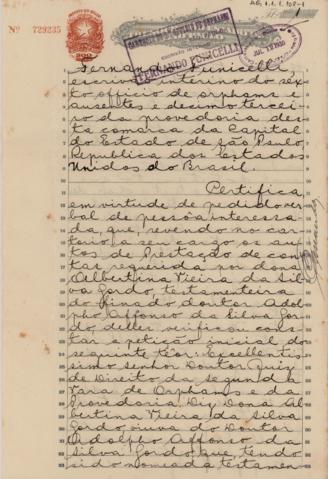 AG. 1.1.1.108-1
Nº 729235
FERNANDO PINICELLI
Fernando Pinicelli,
escrivão interino do sex
to officio de orphams e
ausentes e decimo tercei
ro da provedoria des
ta comarca da Capital
do Estado de São Paulo,
Republica dos Estados
Unidos do Brasil.
Certifica,
em virtude de pedido ver
bal de pessôa interessa
da, que, revendo no car
torio a seu cargo os au
tos de Prestação de con
tas requerida por dona
Albertina Vieira da Sil
va Gordo, testamenteira
do finado doutor Adol
pho Affonso da Silva Gor
do delles verificou cons
tar a petição inicial do
seguinte teôr: Excellentis
simo senhor Doutor Juiz
de Direito da segunda
Vara de Orphams e da
Provedoria. Diz Dona Al
bertina Vieira da Silva
Gordo, viuva do Doutor
Adolpho Affonso da
Silva Gordo que, tendo
sido nomeada testamen-